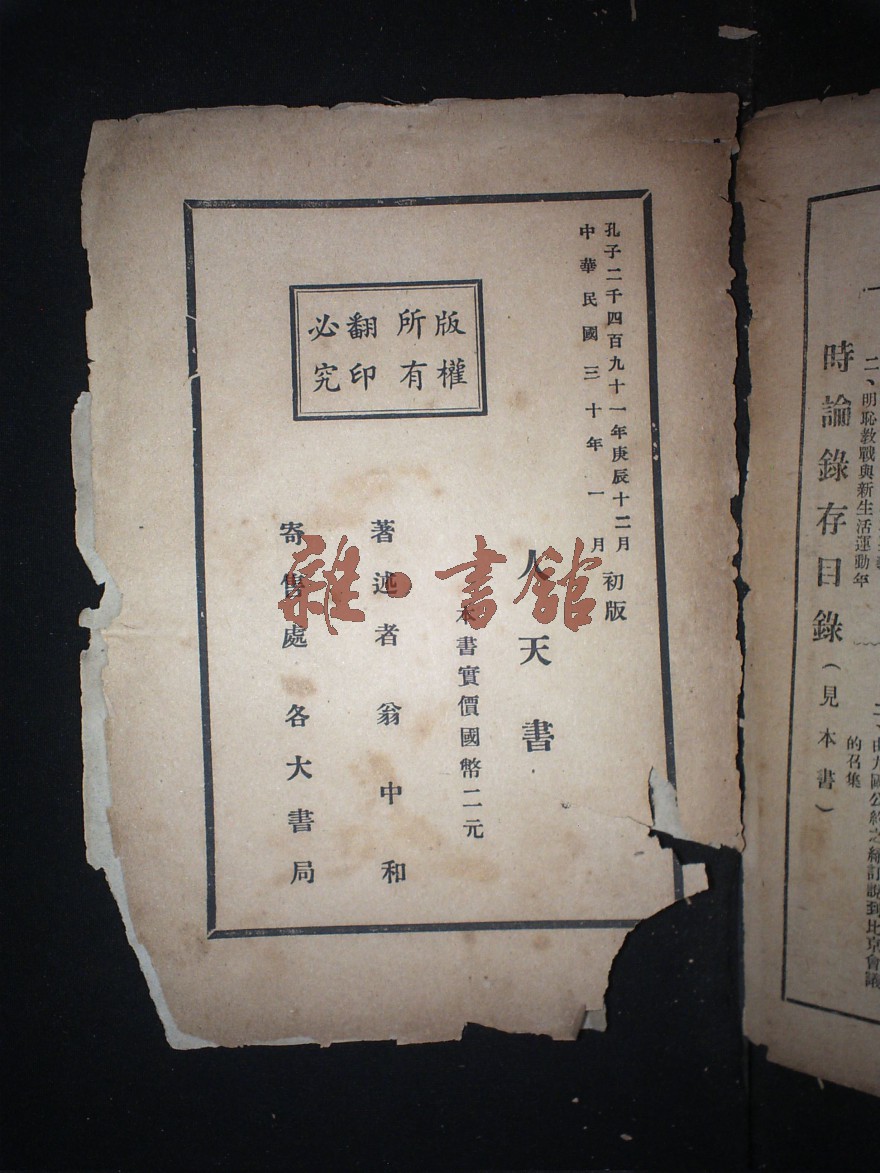 孔子二千四百九十一年庚辰十二月
中華民國三十年一月
初版
版權所有
翻印必究
人天書
本書實價國幣二元
著述者 翁中和
寄售處 各大書局
雜·書館
二、明恥教戰與新生活運動年
時論錄存目錄（見本書）
的召集